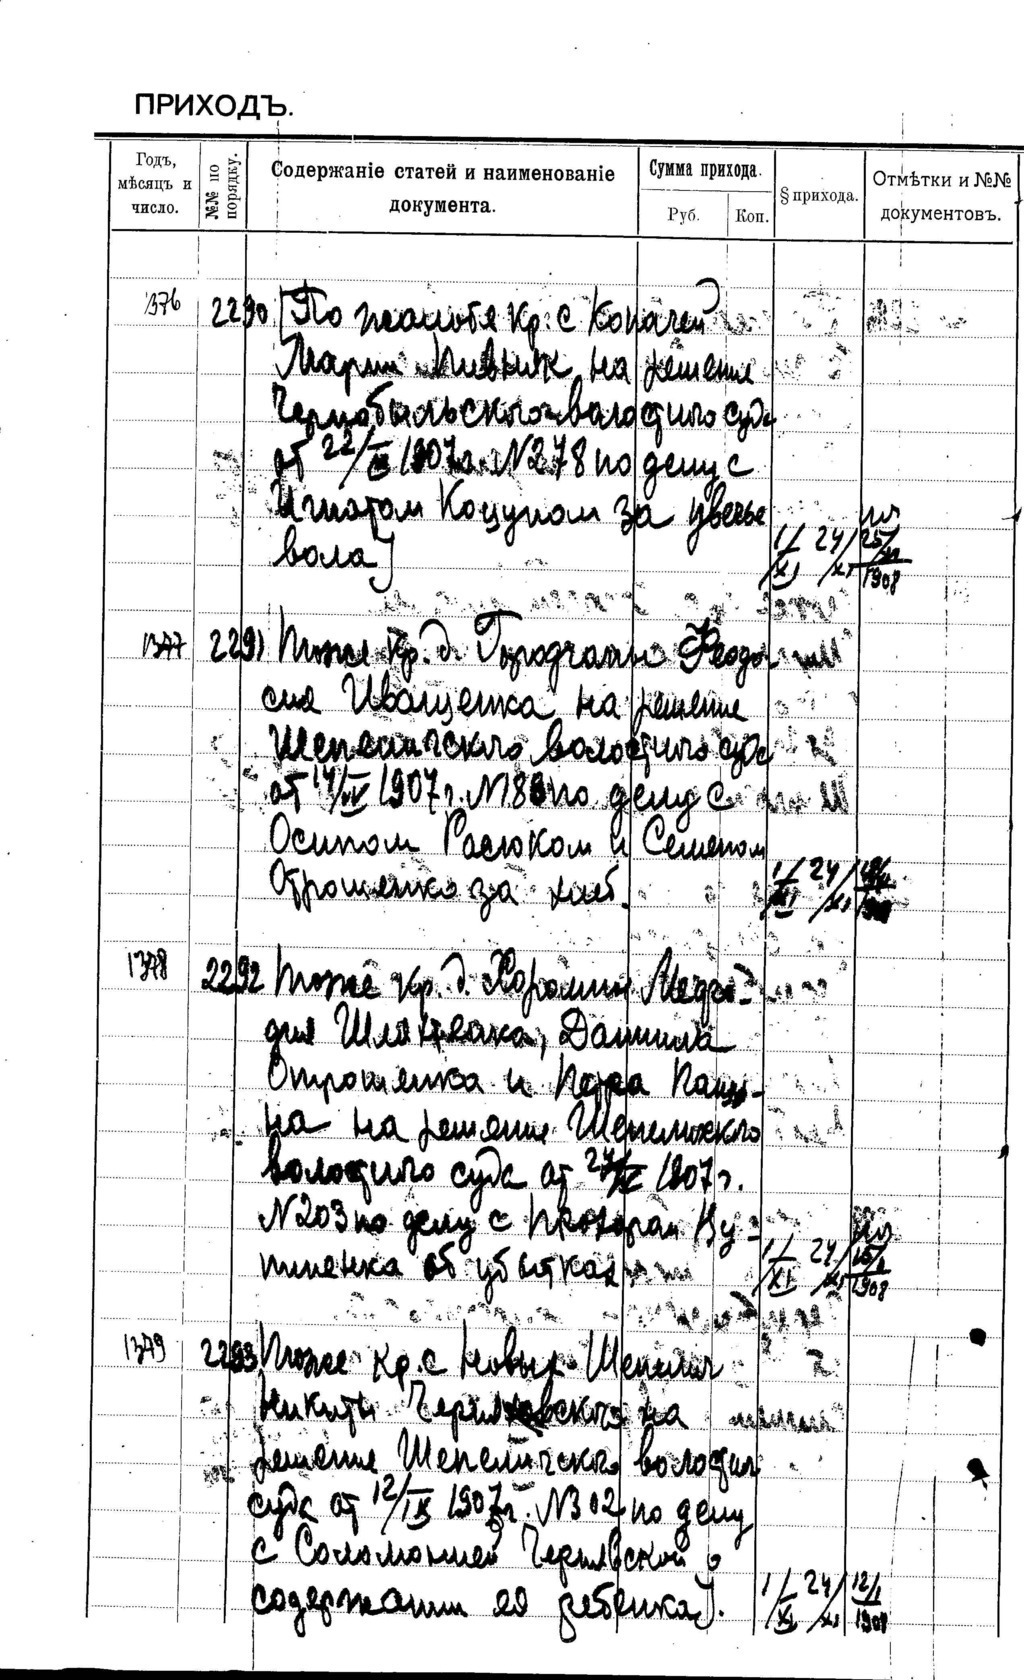 ПРИХОДЪ.
Годъ, мѣсяцъ и число.
№№ по порядку.
Содержаніе статей и наименованіе документа.
Сумма прихода.
Руб.
Коп.
§ прихода.
Отмѣтки и №№ документовъ.
1376 2290 (По жалобе кр. с Копачей
Марии Пивняк на решение
Чернобыльского волостного суда
от 22/IX 1907 г. N278 по делу с
Игнатом Коцупом за увечье
вола)
1/XI 24/XI 25/XI 1908
1377 2291 Тоже кр. д. Городчан Феодо
сия Иващенка на решение
Шепеличского волостного суда
от 14/IV 1907 г. N 89 по делу с
Осипом Расюком и Семеном
Отрошенко за хлеб.
1/XI 24/XI
1378 2292 Тоже кр. д. Хоромин Мефо-
дия Отрошенка, Даниила
Отрошенка и Петра Кацу-
на на решение Шепеличского
волостного суда от 24/IX 1907 г.
N203 по делу с Прохором Ку-
тленка об убытках
1/XI 24/XI 1908
1379 2293 Тоже кр. с Новых Шепелич
Никиты Черняховского на
решение Шепеличского волостн
суда от 12/IX 1907 г. N302 по делу
с Соломонией Чернявской о
содержании ее ребенка).
1/XI 24/XI 12/1 1908